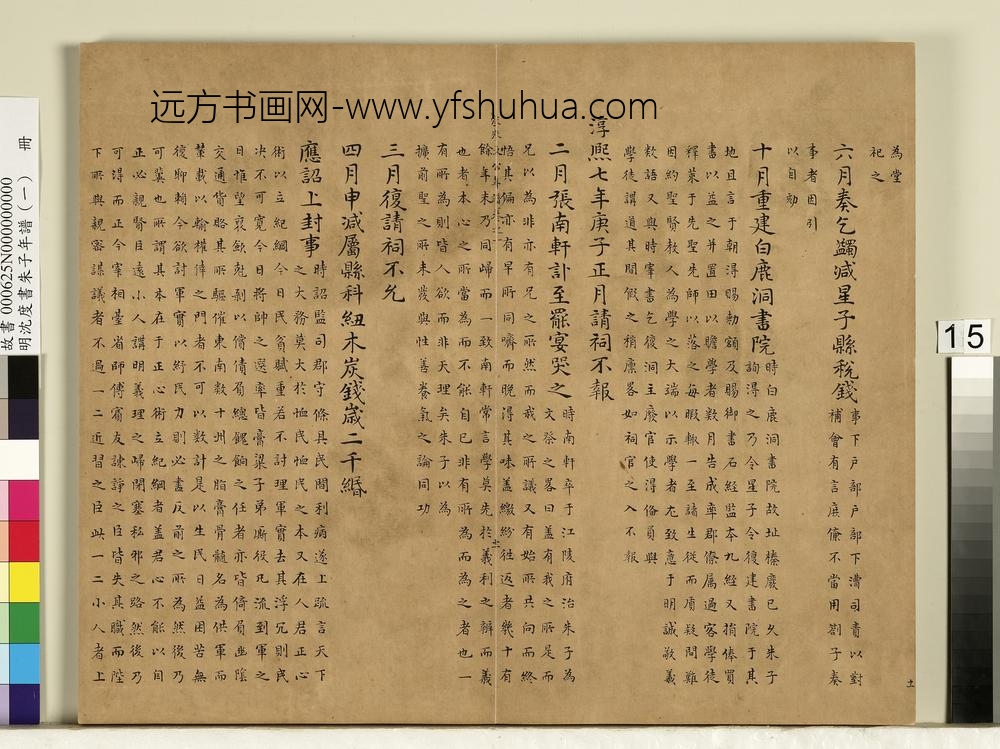 远方书画网-www.yfshuhua.com
為堂
祀之
六月奏乞蠲減星子縣稅錢
事下戶部戶部下漕司責以對
補會有言庶僚不當用劄子奏
事者因引
以自劾
十月重建白鹿洞書院
時白鹿洞書院故址榛廢已久朱子
詢得之乃令星子令復建書院于其
地且言于朝得賜勅額及賜御書石經監本九經又捐俸買
書以益之并置田以贍學者數月告成率郡僚屬過客學徒
釋菜于先聖先師以落之每暇輒一至諸生從而質疑問難
因約聖賢教人為學之大端以示學者尤致意于明誠敬義
數語又與時宰書乞復洞主廢官使得俻員與
學徒講道其間假之稍廩畧如祠官之入不報
淳熙七年庚子正月請祠不報
二月張南軒訃至罷宴哭之
時南軒卒于江陵府治朱子為
文祭之畧曰盖有我之所是而
兄以為非亦有兄之所然而我之所議又有始所共向而終
悟其偏亦有早所同嚌而晚得其味盖繳紛徃返者幾十有
餘年末乃同歸而一致南軒常言學莫先於義利之辨而義
也者本心之所當為而不能自已非有所為而為之者也一
有所為則皆人欲而非天理矣朱子以為
擴前聖之所未發與性善養氣之論同功
三月復請祠不允
四月申減屬縣科紐木炭錢歲二千緡
應詔上封事
時詔監司郡守條具民間利病遂上疏言天下
之大務莫大於恤民恤民之本又在人君正心
術以立紀綱今日民貧賦重若不討理軍實去其浮冗則民
决不可寬今日將帥之選率皆膏粱子弟厮役凡流到軍之
日惟望裒歛尅剥以償債負總餽餉之任者亦皆倚負幽陰
交通貨賂其所驅催東南數十州之脂膏骨髓名為供軍而
輦載以輸權倖之門者不可以數計是以生民日益困苦無
復聊賴今欲討軍實以紓民力則必盡反前之所為然後乃
可冀也所謂其本在于正心術立紀綱者盖君心不能以自
正必親賢臣遠小人講明義理之歸閉塞私邪之路然後乃
可得而正今宰相臺省師傅賓友諫諍之臣皆失其職而陛
下所與親密謀議者不過一二近習之臣此一二小人者上
士
故書 000625N000000000
明沈度書朱子年譜(一) 冊
15